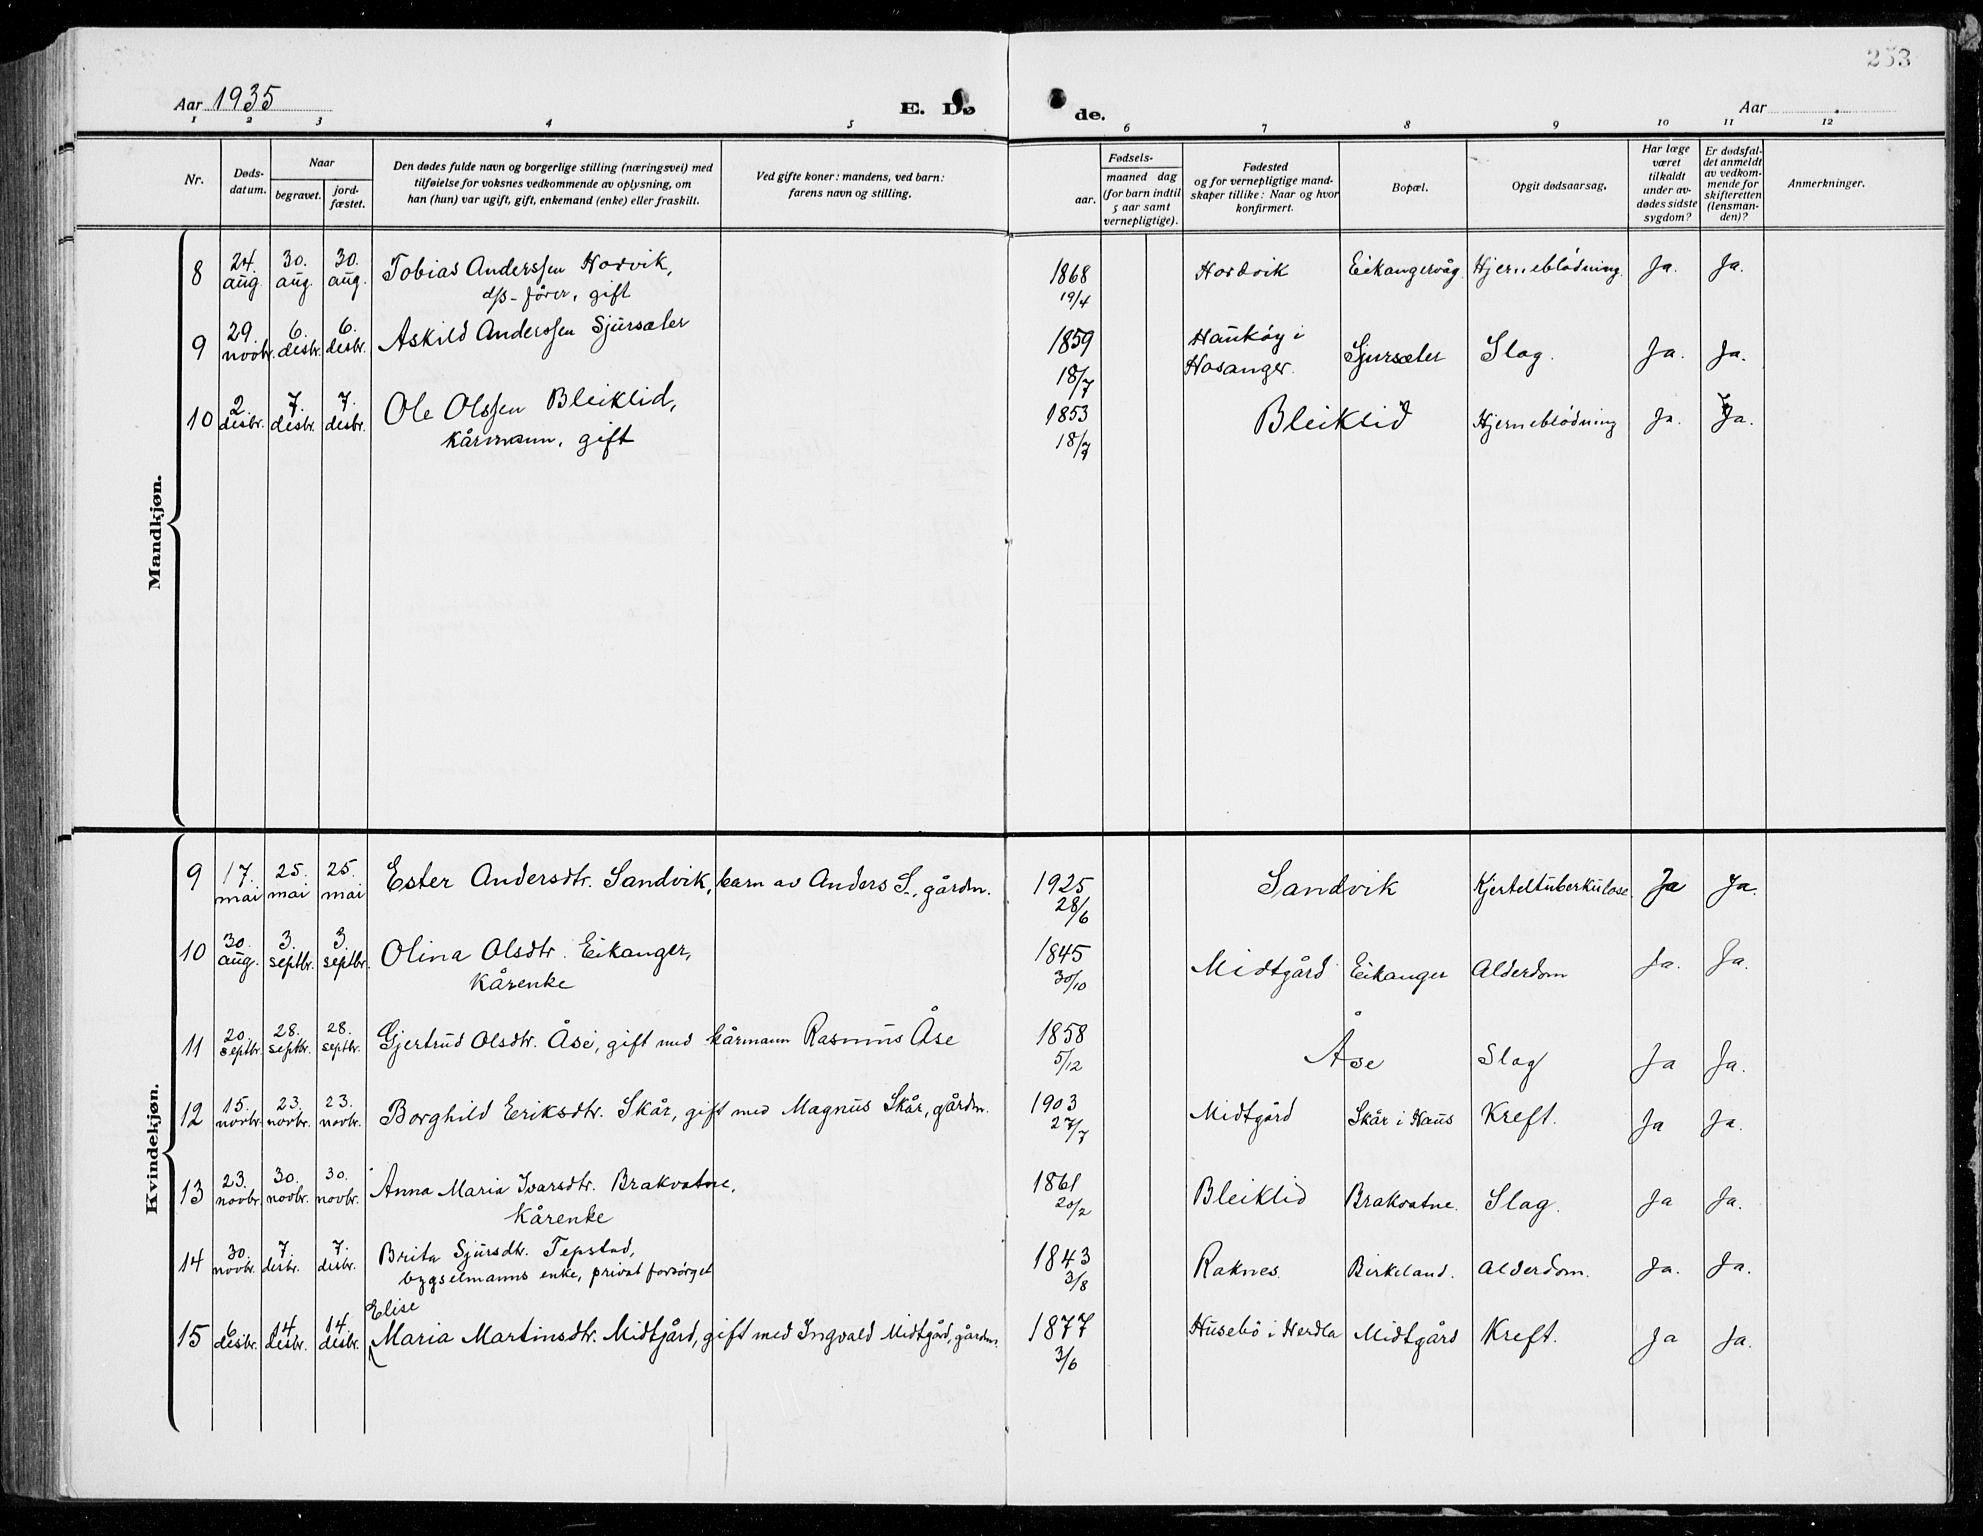 253
Aar 1935
E. Dø de.
Aar
1 2 3 4 5 6 7 8 9 10 11 12
Nr.
Døds-
datum.
Naar
begravet.
jord-
fæstet.
Den dødes fulde navn og borgerlige stilling (næringsvei) med
tilføielse for voksnes vedkommende av oplysning, om
han (hun) var ugift, gift, enkemand (enke) eller fraskilt.
Ved gifte koner: mandens, ved barn:
farens navn og stilling.
Fødsels-
aar.
maaned dag
(for barn indtil
5 aar samt
vernepligtige).
Fødested
og for vernepligtige mand-
skaper tillike: Naar og hvor
konfirmert.
Bopæl.
Opgit dødsaarsag.
Har læge
været
tilkaldt
under av-
dødes sidste
sygdom?
Er dødsfal-
det anmeldt
av vedkom-
mende for
skifteretten
(lensman-
den)?
Anmerkninger.
Mandkjøn.
8 24. aug. 30. aug. 30. aug. Tobias Anderssen Horvik, 1868 Hordvik Eikangervåg. Hjerneblödning. Ja. Ja.
d/s-förer, gift 19/4
9 29. novbr. 6. desbr. 6. desbr. Askild Anderssen Sjursæter 1859 Hauköy i Sjursæter Slag. Ja. Ja.
18/7 Hosanger.
10 2. desbr. 7. desbr. 7. desbr. Ole Olssen Bleiklid, 1853 Bleiklid Hjerneblödning Ja. Ja.
kårmann, gift 18/7
Kvindekjøn.
9 17. mai 25. mai 25. mai Ester Andersdtr. Sandvik, barn av Anders S., gårdm. 1925 Sandvik Kjerteltuberkulose. Ja Ja.
28/6
10 30. aug. 3. septbr. 3. septbr. Olina Olsdtr. Eikanger, 1845 Midtgård Eikanger Alderdom Ja. Ja.
Kårenke 30/10
11 20. septbr. 28. septbr. 28. septbr. Gjertrud Olsdtr. Åse, gift med kårmann Rasmus Åse 1858 Åse Slag Ja Ja.
5/12
12 15. novbr. 23. novbr. 23. novbr. Borghild Eriksdtr. Skår, gift med Magnus Skår, gårdm. 1903 Midtgård Skår i Haus Kreft. Ja Ja.
27/7
13 23. novbr. 30. novbr. 30. novbr. Anna Maria Ivarsdtr. Brakvatne, 1861 Bleiklid Brakvatne. Slag. Ja Ja.
Kårenke 20/2
14 30. novbr. 7. desbr. 7. desbr. Brita Sjursdtr. Tepstad, 1843 Raknes. Birkeland. Alderdom. Ja. Ja.
bygselmanns enke, privat forsörget 3/8
Elise
15 6. desbr. 14. desbr. 14. desbr. Maria Martinsdtr. Midtgård, gift med Ingvald Midtgård, gårdm. 1877 Husebö i Herdla Midtgård Kreft. Ja Ja.
3/6